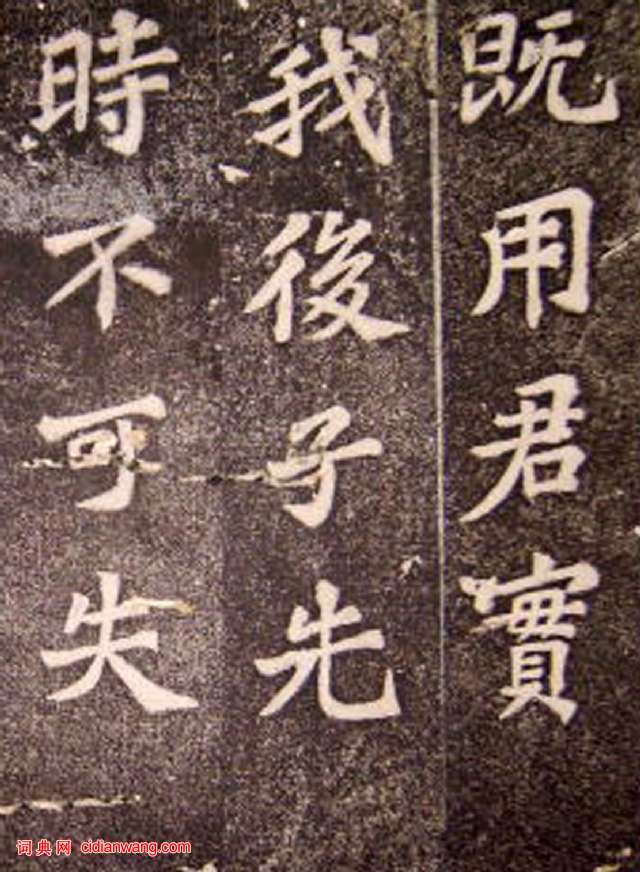 既用君實
我後子先
時不可失
词典网 cidianwang.com